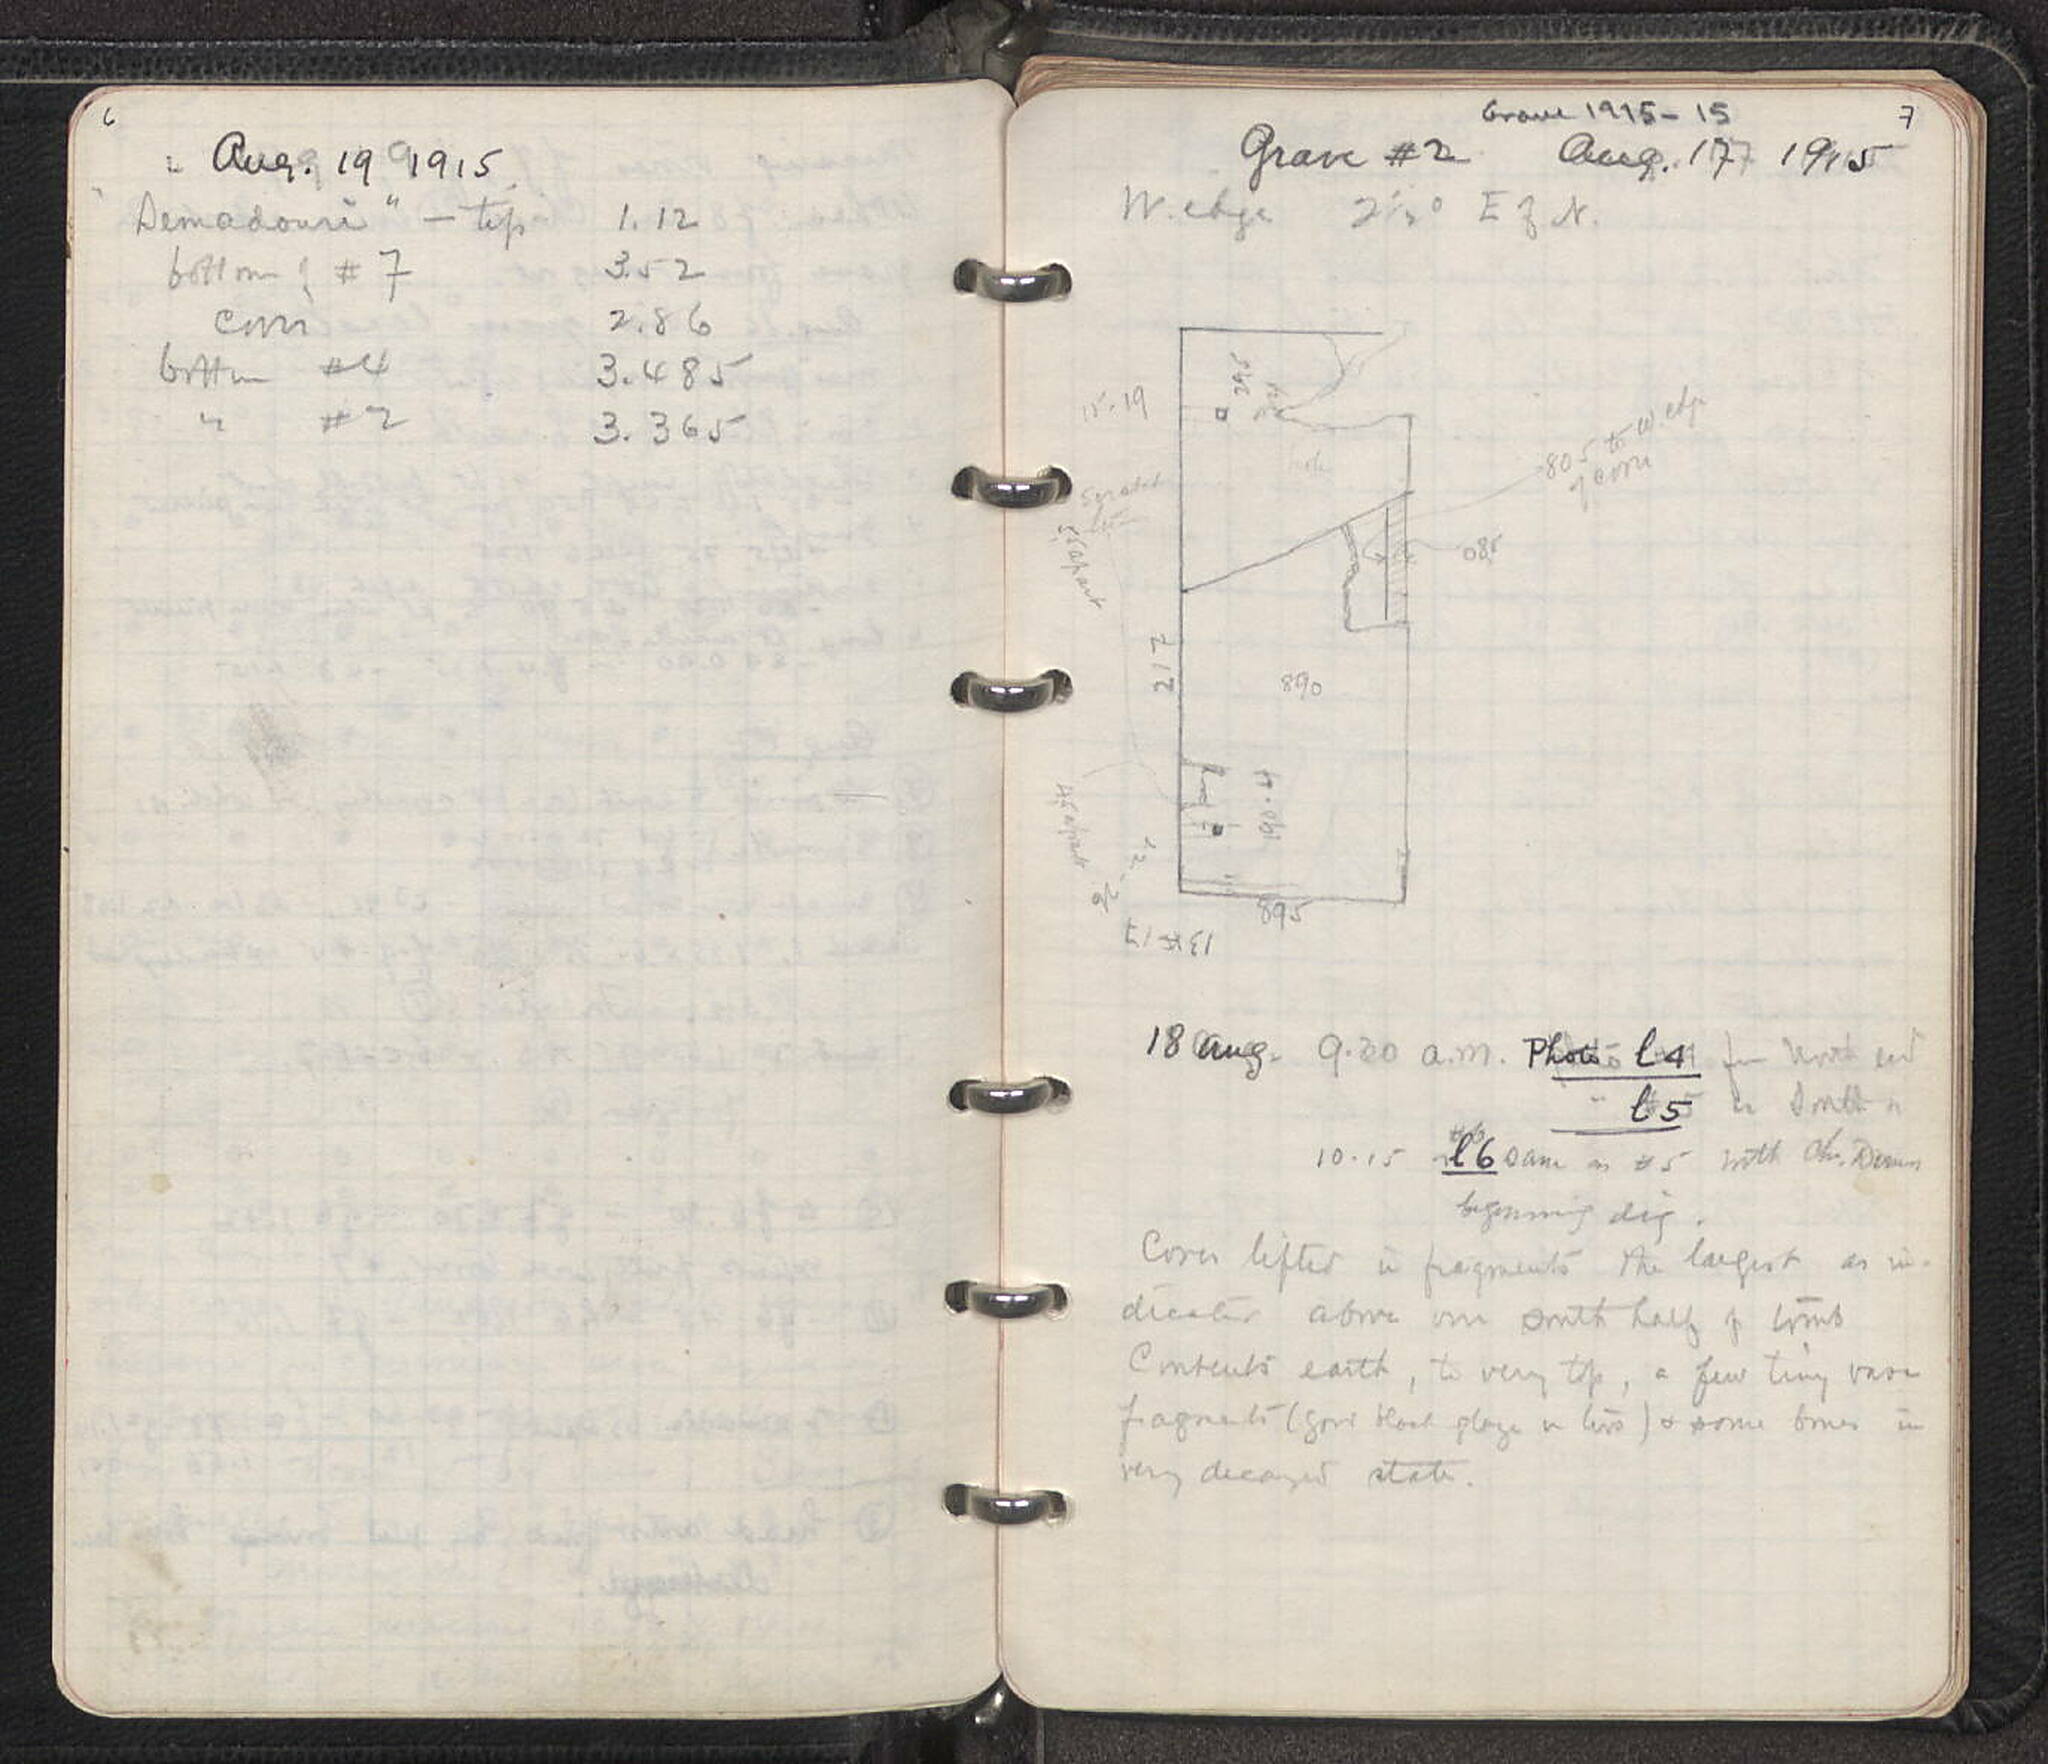 6
Aug. 19 1915
"Demadouri" — top 1.12
bottom of #7 3.52
cover 2.86
bottom #4 3.485
" #2 3.365
7
Grave 1915-15
Grave #2 Aug. 17 1915
W. edge E of N.
15.19
hole
80.5 to W. edge
of cover
5.5 apart
217
890
4.5 apart
895
18 Aug. 9.20 a.m. Photo l4 from North end
" l5 " South "
10.15 l6 same as #5 with
beginning dig.
Cover lifted in fragments the largest as in-
dicated above over south half of tomb
Contents earth, to very top, a few tiny vase
fragments (good black glaze in two) & some bones in
very decayed state.